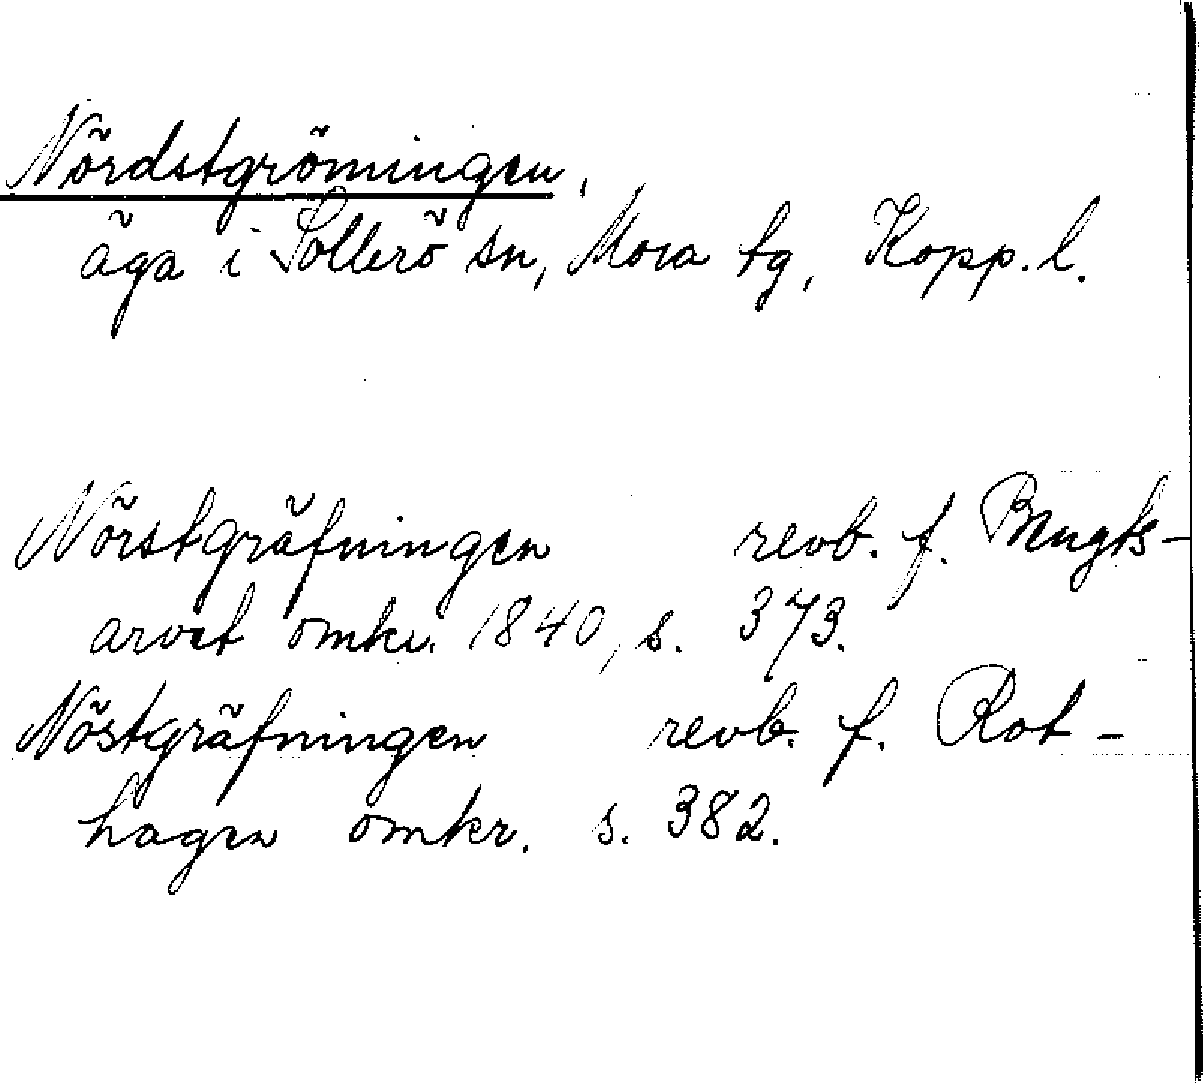 Nördstgrömingen,
äga i Sollerö sn, Mora tg, Kopp. l.
Nörstgräfningen revb. f. Bengts-
arvet omkr. 1840, s. 373.
Nöstgräfningen revb. f. Rot-
hagen omkr. s. 382.